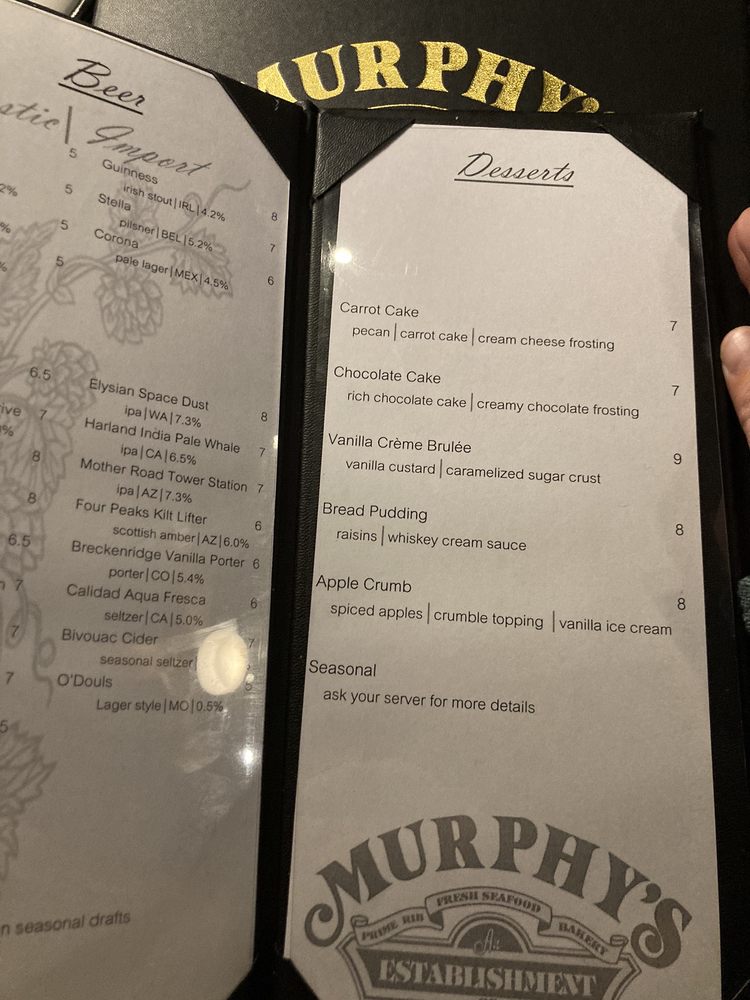 MURPHY'S
Beer
Import
5
Guinness
irish stout|IRL|4.2% 8
2% 5
Stella
pilsner|BEL|5.2% 7
% 5
Corona
pale lager|MEX|4.5% 6
% 5
6.5
Elysian Space Dust
ipa|WA|7.3% 8
7
Harland India Pale Whale 7
% ipa|CA|6.5%
8
Mother Road Tower Station 7
ipa|AZ|7.3%
8
Four Peaks Kilt Lifter 6
scottish amber|AZ|6.0%
6.5
Breckenridge Vanilla Porter 6
porter|CO|5.4%
7
Calidad Aqua Fresca 6
seltzer|CA|5.0%
7
Bivouac Cider 7
seasonal seltzer|
7
O'Douls 5
Lager style|MO|0.5%
5
n seasonal drafts
Desserts
Carrot Cake 7
pecan|carrot cake|cream cheese frosting
Chocolate Cake 7
rich chocolate cake|creamy chocolate frosting
Vanilla Crème Brulée 9
vanilla custard|caramelized sugar crust
Bread Pudding 8
raisins|whiskey cream sauce
Apple Crumb 8
spiced apples|crumble topping |vanilla ice cream
Seasonal
ask your server for more details
MURPHY'S
PRIME RIB FRESH SEAFOOD BAKERY
An
ESTABLISHMENT